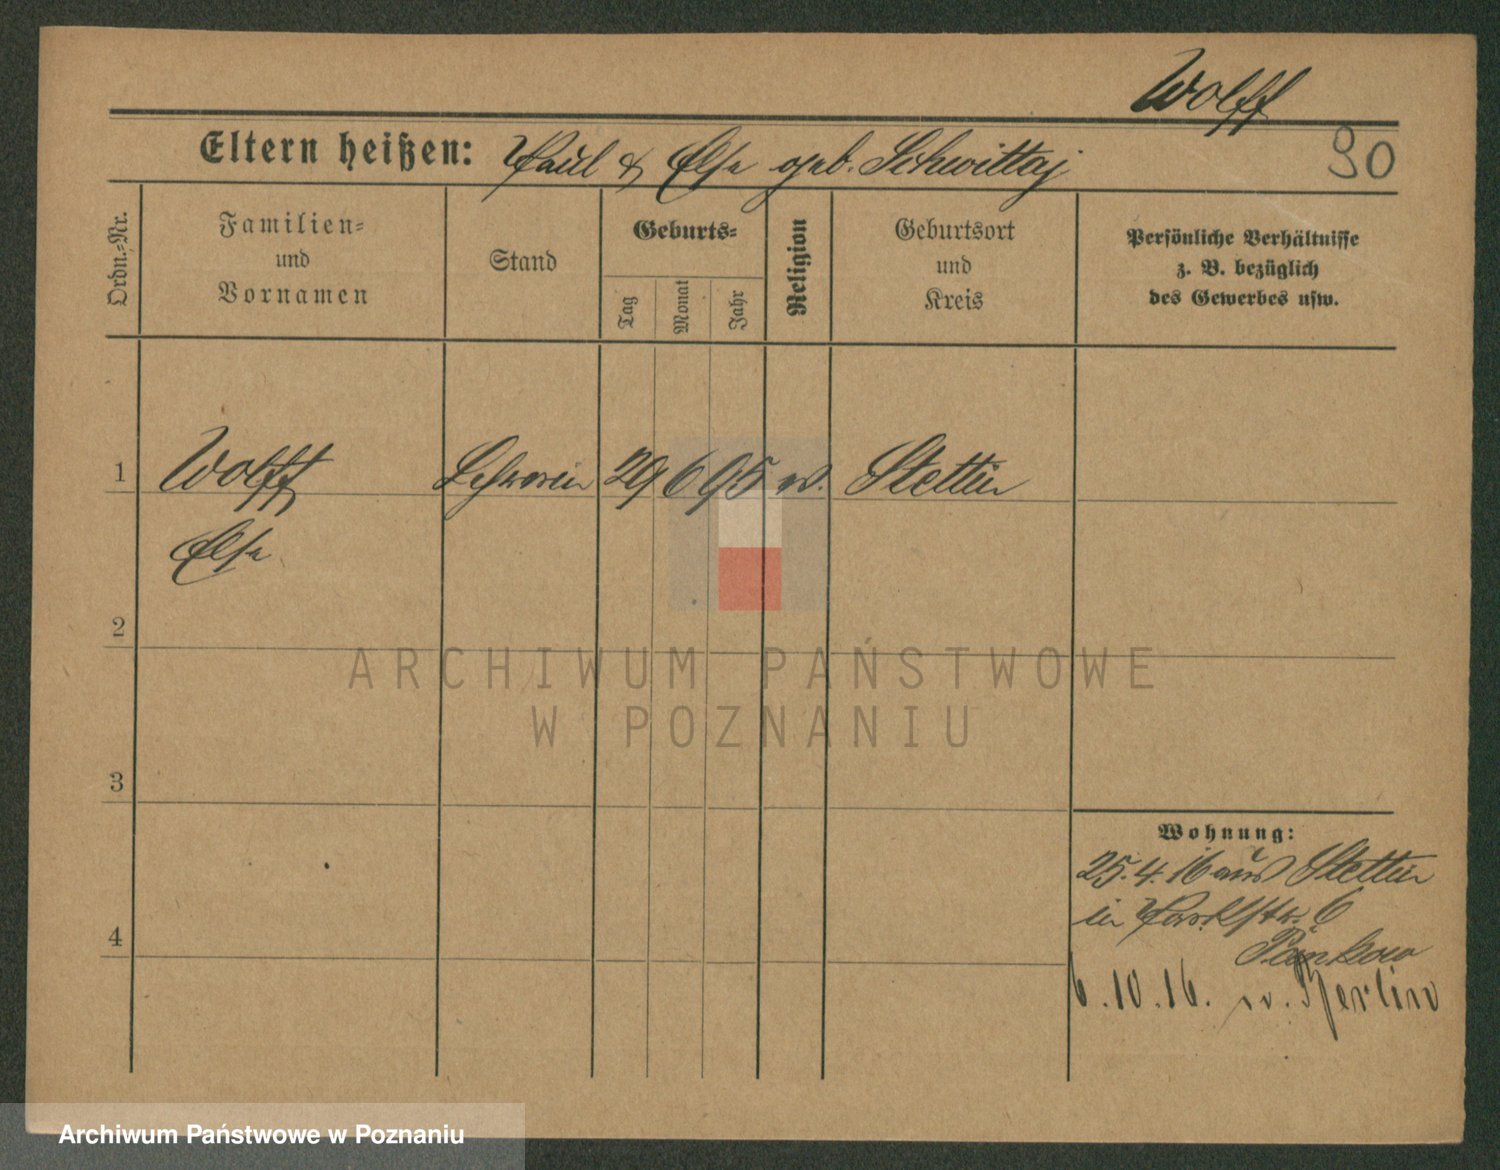 Wolff
Eltern heißen: Paul & Else geb. Schwittaj
90
Ordn.-Nr.
Familien-
und
Vornamen
Stand
Geburts-
Tag
Monat
Jahr
Religion
Geburtsort
und
Kreis
Persönliche Verhältnisse
z. B. bezüglich
des Gewerbes usw.
1 Wolff 29 6 95 Stettin
Else
2
3
4
Wohnung:
25.4.16 aus Stettin
in Parkstr. 6
Pankow
6.10.16. n. Berlin
ARCHIWUM PAŃSTWOWE
W POZNANIU
Archiwum Państwowe w Poznaniu